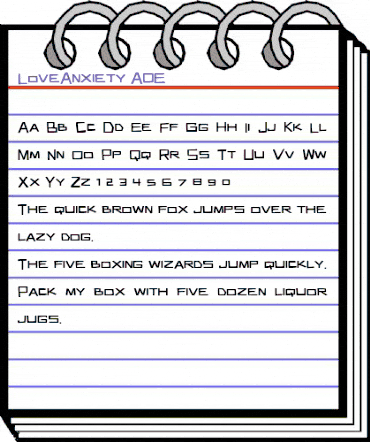 LoveAnxiety AOE
Aa Bb Cc Dd Ee Ff Gg Hh Ii Jj Kk Ll
Mm Nn Oo Pp Qq Rr Ss Tt Uu Vv Ww
Xx Yy Zz 1 2 3 4 5 6 7 8 9 0
The quick brown fox jumps over the
lazy dog.
The five boxing wizards jump quickly.
Pack my box with five dozen liquor
jugs.